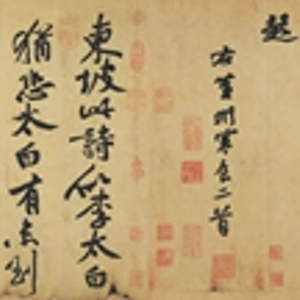 起
右黄州寒食二首
東坡此詩似李太白
猶恐太白有未到